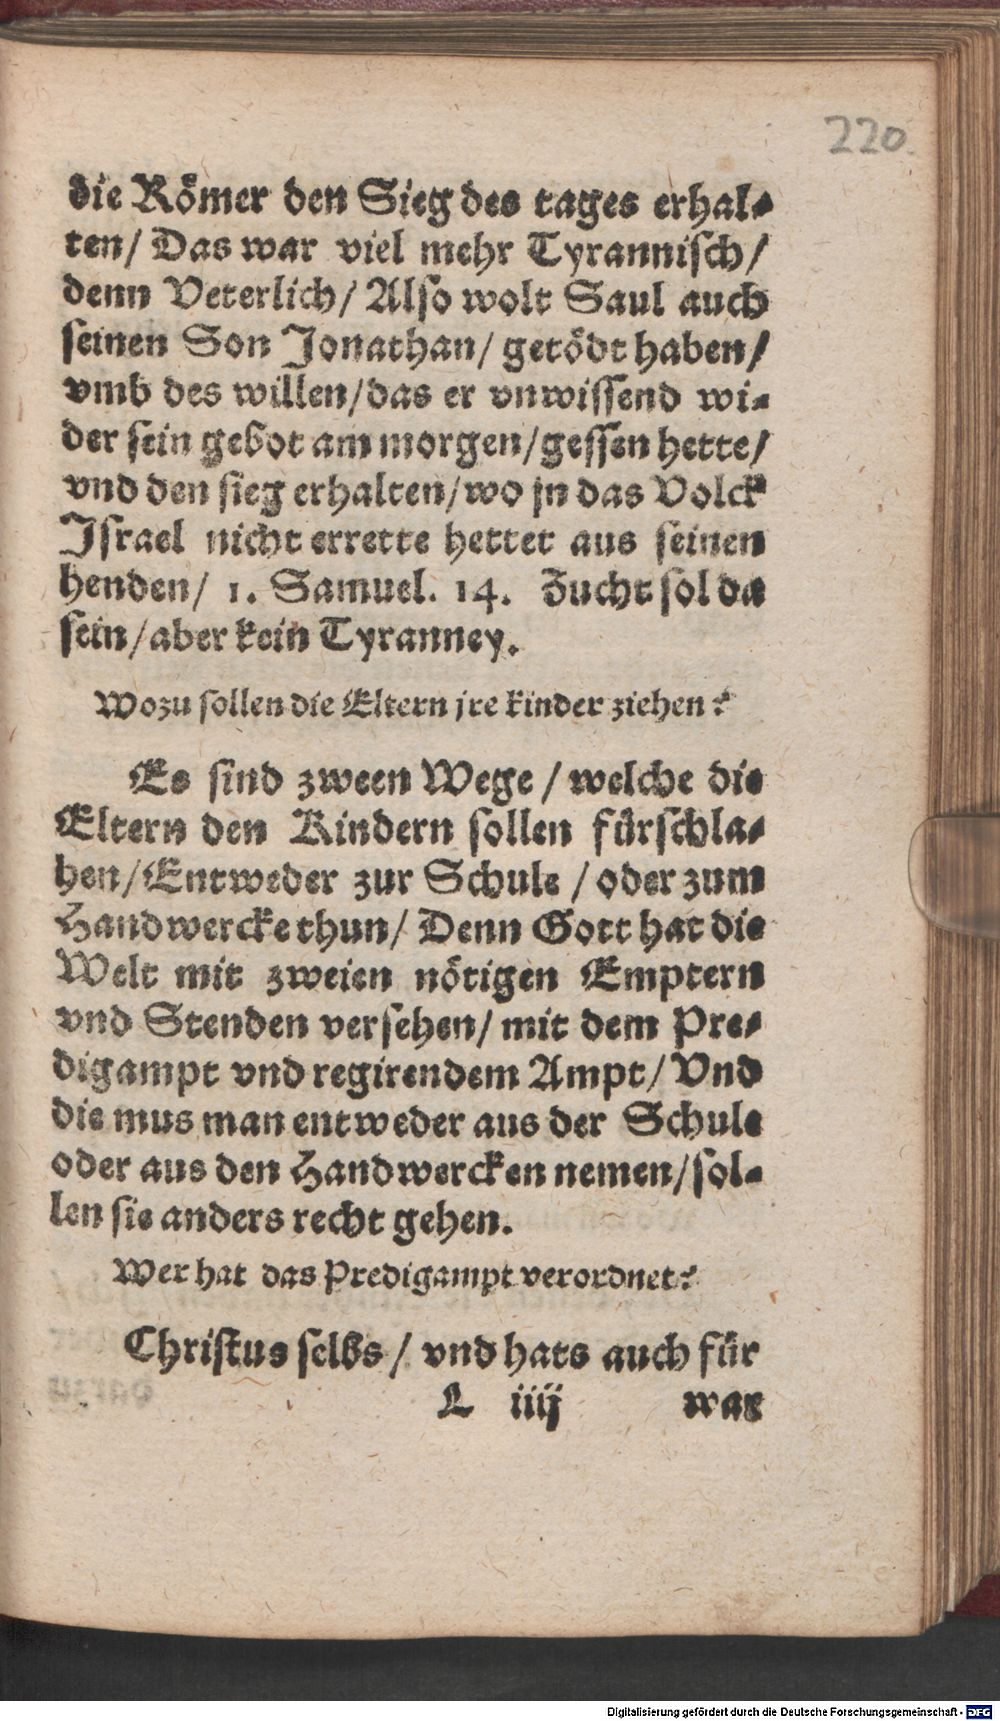 220.
die Römer den Sieg des tages erhal-
ten/ Das war viel mehr Tyrannisch/
denn Veterlich/ Also wolt Saul auch
seinen Son Jonathan/ getödt haben/
vmb des willen/das er vnwissend wi-
der sein gebot am morgen/gessen hette/
vnd den sieg erhalten/wo jn das Volck
Israel nicht errette hettet aus seinen
henden/ 1. Samuel. 14. Zucht sol da
sein/aber kein Tyranney.
Wozu sollen die Eltern jre kinder ziehen?
Es sind zween Wege / welche die
Eltern den Kindern sollen fürschla-
hen/Entweder zur Schule / oder zum
Handwercke thun/ Denn Gott hat die
Welt mit zweien nötigen Emptern
vnd Stenden versehen/ mit dem Pre-
digampt vnd regirendem Ampt/ Vnd
die mus man entweder aus der Schule
oder aus den Handwercken nemen/sol-
len sie anders recht gehen.
Wer hat das Predigampt verordnet?
Christus selbs / vnd hats auch für
L iiij war
Digitalisierung gefördert durch die Deutsche Forschungsgemeinschaft - DFG